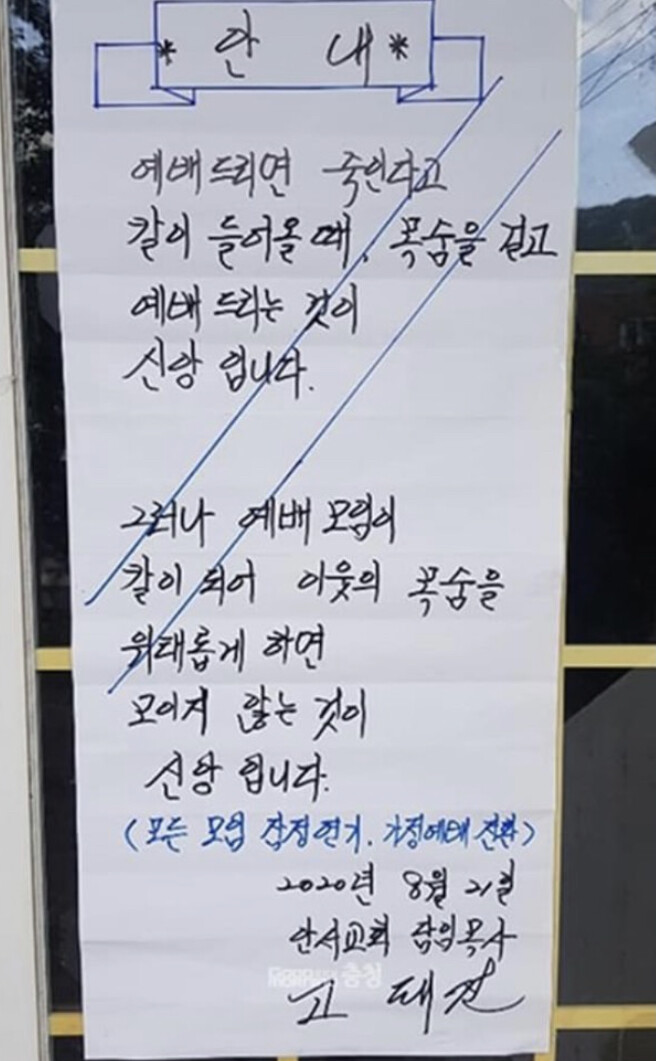 * 안 내 *
예배드리면 죽인다고
칼이 들어올 때, 목숨을 걸고
예배 드리는 것이
신앙 입니다.
그러나 예배 모임이
칼이 되어 이웃의 목숨을
위태롭게 하면
모이지 않는 것이
신앙 입니다.
(모든 모임 잠정연기, 가정예배 전환)
2020년 8월 21일
안서교회 담임목사
고 태 진
충청